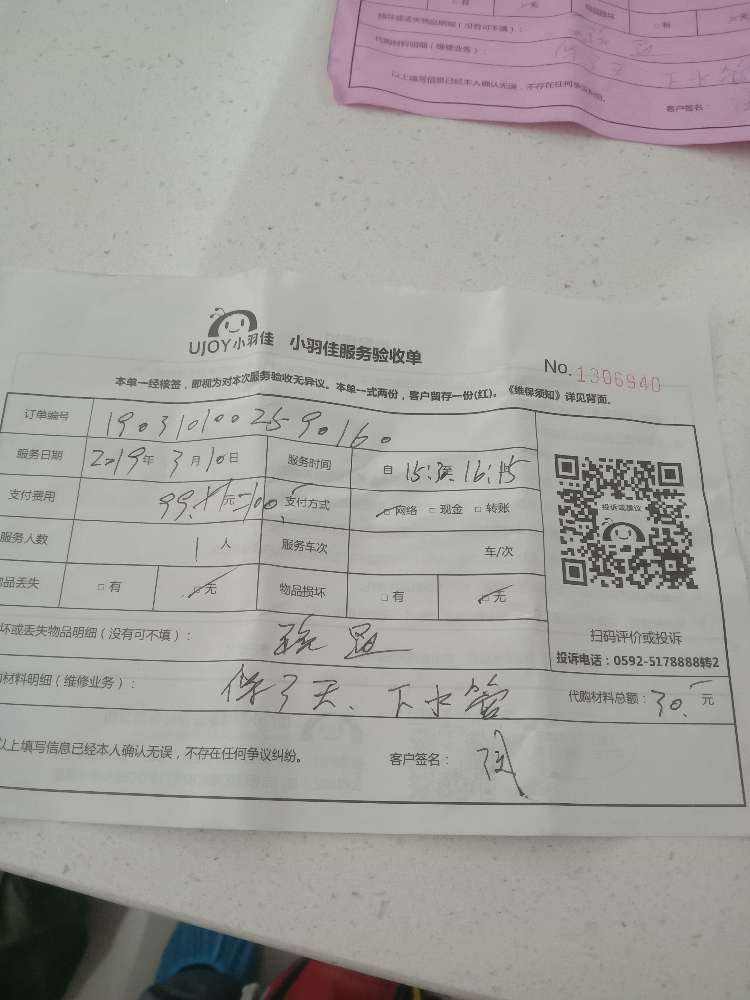 有 无 物品损坏 有 无
损坏或丢失物品明细（没有可不填）：
代购材料明细（维修业务）： 下水管
以上填写信息已经本人确认无误，不存在任何争议纠纷。 客户签名：
UJOY小羽佳 小羽佳服务验收单 No. 1306940
本单一经核签，即视为对本次服务验收无异议。本单一式两份，客户留存一份(红)。《维保须知》详见背面。
订单编号 1903101002590160
服务日期 2019年 3月10日 服务时间 自 15:30至 16:15
支付费用 元 支付方式 网络 现金 转账
服务人数 1 人 服务车次 车/次
物品丢失 有 无 物品损坏 有 无
投诉或建议
扫码评价或投诉
投诉电话：0592-5178888转2
坏或丢失物品明细（没有可不填）：
材料明细（维修业务）： 保3天、下水管 代购材料总额：30. 元
以上填写信息已经本人确认无误，不存在任何争议纠纷。 客户签名：